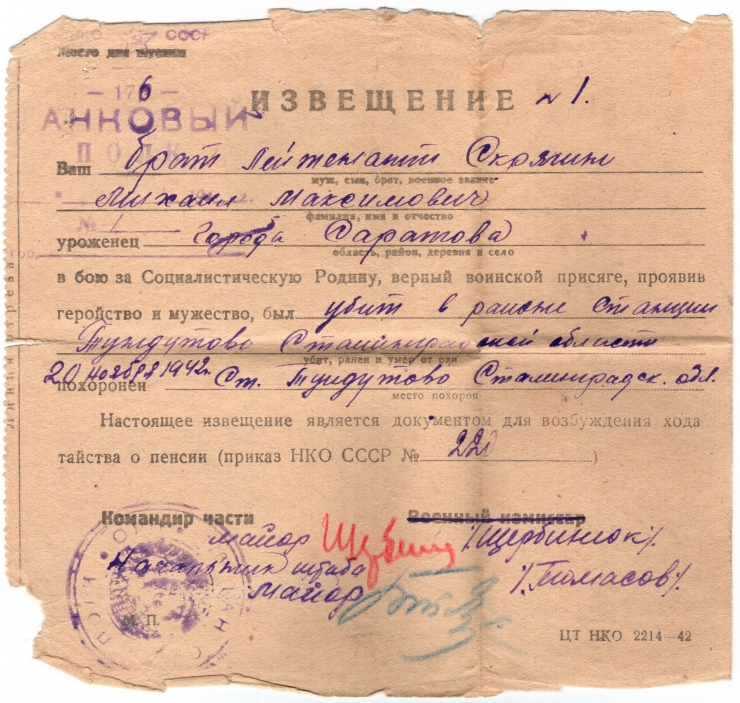 НКО СССР
Место для штампа
— 176 —
ТАНКОВЫЙ
ПОЛК
№ 1
ИЗВЕЩЕНИЕ № 1.
Ваш брат Лейтенант Скрячин
муж, сын, брат, военное звание
Михаил Максимович
фамилия, имя и отчество
уроженец Города Саратова
область, район, деревня и село
в бою за Социалистическую Родину, верный воинской присяге, проявив
геройство и мужество, был убит в районе Станции
Тундутово Сталинградской области
убит, ранен и умер от ран
20 ноября 1942г.
похоронен Ст. Тундутово Сталинградск. обл.
место похорон
Настоящее извещение является документом для возбуждения хода
тайства о пенсии (приказ НКО СССР № 220)
Командир части Военный комиссар
майор /Щербинюк/.
Начальник штаба
Майор /Томасов/.
М. П.
ЦТ НКО. 2214—42
Линия отреза